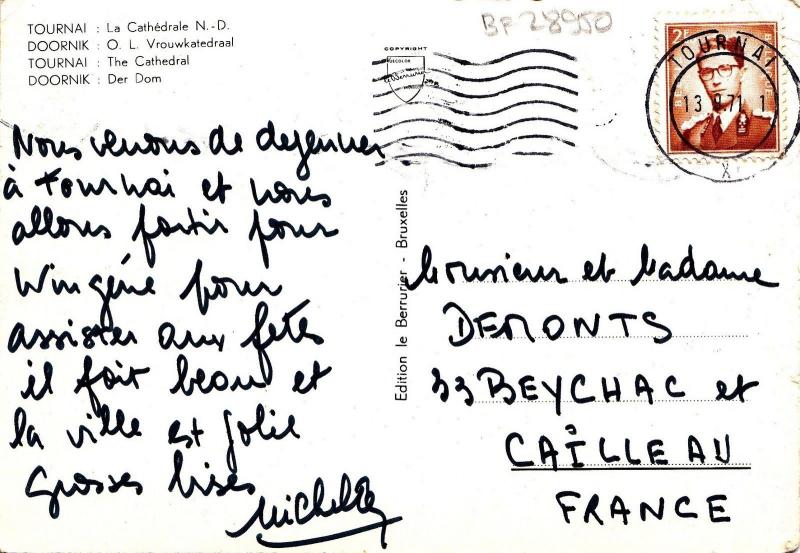 TOURNAI : La Cathédrale N.-D.
DOORNIK : O. L. Vrouwkatedraal
TOURNAI : The Cathedral
DOORNIK : Der Dom
BF 28950
COPYRIGHT
DECOLOR
le Berrurier
2F
TOURNAI
13 9.71 1
X
Nous venons de dejeuner
à Tournai et nous
allons partir pour
Wingène pour
assister aux fêtes
il fait beau et
la ville est jolie
Grosses bises
Edition le Berrurier - Bruxelles
Monsieur et Madame
DEMONTS
33 BEYCHAC et
CAILLEAU
FRANCE